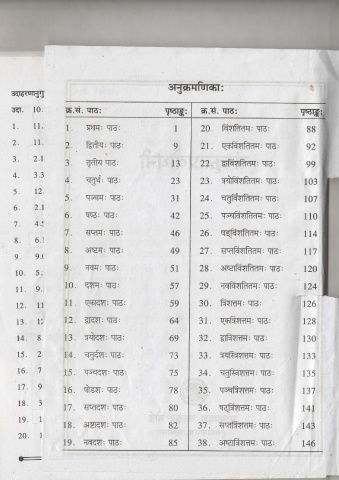 अनुक्रमणिकाः
क्र.सं. पाठः पृष्ठाङ्कः क्र.सं. पाठः पृष्ठाङ्कः
1. प्रथमः पाठः 1 20. विंशतितमः पाठः 88
2. द्वितीयः पाठः 9 21. एकविंशतितमः पाठः 92
3. तृतीय पाठः 13 22. द्वाविंशतितमः पाठः 99
4. चतुर्थः पाठः 23 23. त्रयोविंशतितमः पाठः 103
5. पञ्चमः पाठः 31 24. चतुर्विंशतितमः पाठः 107
6. षष्ठः पाठः 42 25. पञ्चविंशतितमः पाठः 110
7. सप्तमः पाठः 46 26. षड्विंशतितमः पाठः 114
8. अष्टमः पाठः 49 27. सप्तविंशतितमः पाठः 117
9. नवमः पाठः 51 28. अष्टाविंशतितमः पाठः 120
10. दशमः पाठः 57 29. नवविंशतितमः पाठः 124
11. एकादशः पाठः 59 30. त्रिंशत्तमः पाठः 126
12. द्वादशः पाठः 64 31. एकत्रिंशत्तमः पाठः 128
13. त्रयोदशः पाठः 69 32. द्वात्रिंशत्तमः पाठः 130
14. चतुर्दशः पाठः 73 33. त्रयस्त्रिंशत्तमः पाठः 133
15. पञ्चदशः पाठः 75 34. चतुस्त्रिंशत्तमः पाठः 135
16. षोडशः पाठः 78 35. पञ्चत्रिंशत्तमः पाठः 137
17. सप्तदशः पाठः 80 36. षट्त्रिंशत्तमः पाठः 141
18. अष्टादशः पाठः 82 37. सप्तत्रिंशत्तमः पाठः 143
19. नवदशः पाठः 85 38. अष्टात्रिंशत्तमः पाठः 146